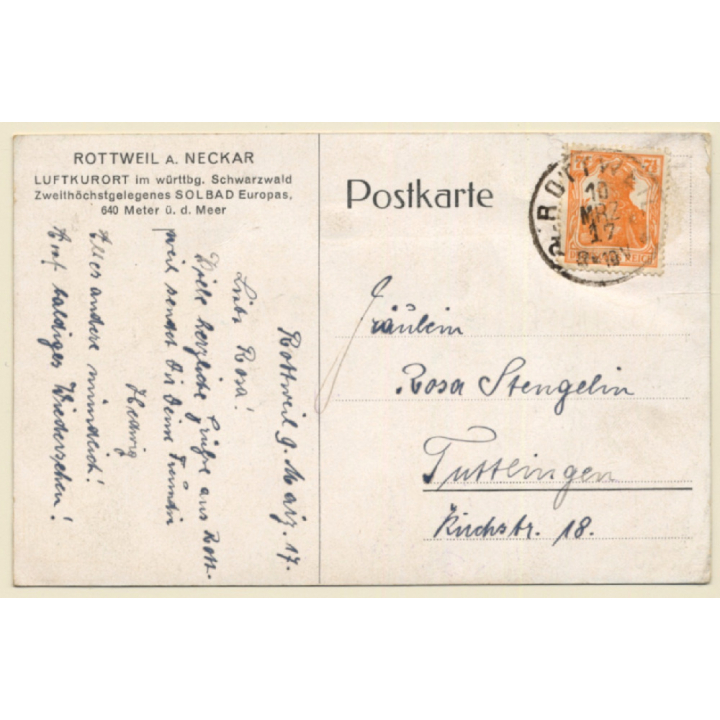 ROTTWEIL A. NECKAR
LUFTKURORT im württbg. Schwarzwald
Zweithöchstgelegenes SOLBAD Europas,
640 Meter ü. d. Meer
Postkarte
10
MRZ
17
Rottweil 9. März. 17.
Liebe Rosa!
Viele herzliche Grüße aus Rott-
weil sendet Dir deine Freundin
Hedwig
Alles andere mündlich!
Auf baldiges Wiedersehen!
Fräulein
Rosa Stengelin
Tuttlingen
Kirchstr. 18.